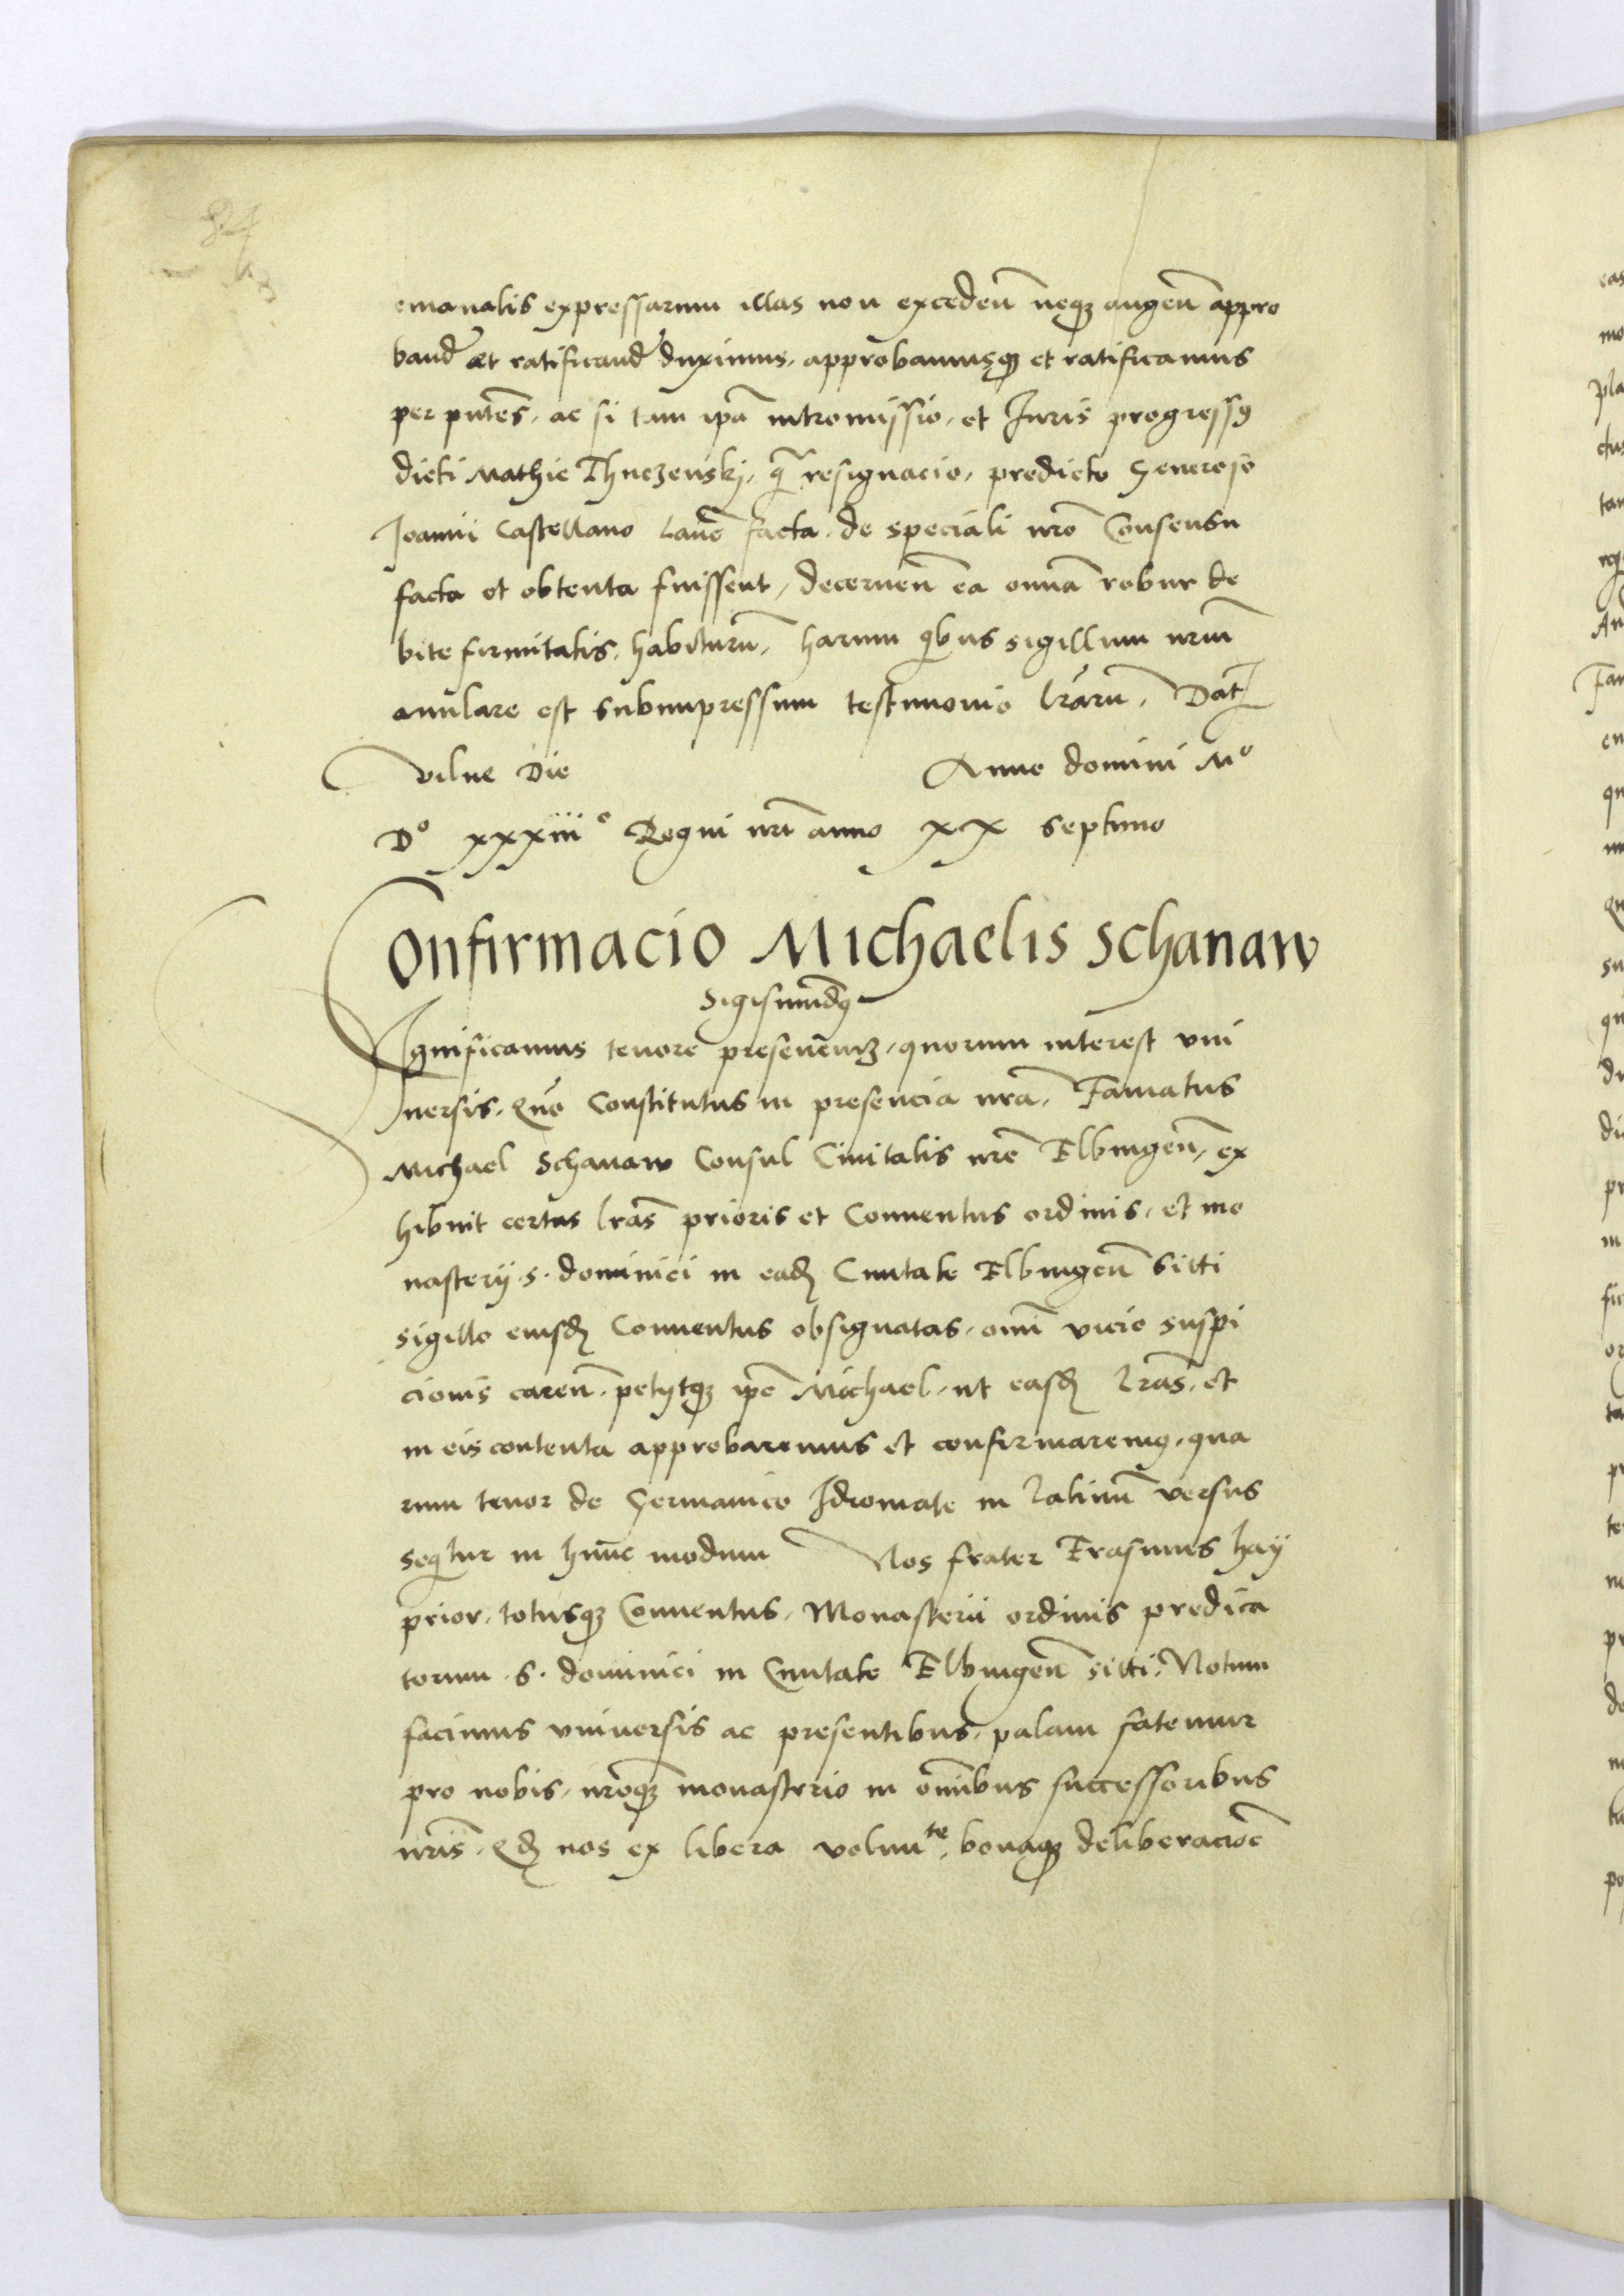 84
emanatis expressarum illas non exceden̄ neqȝ augen̄ appro
band̄ et ratificand̄ duximus, approbamusqȝ et ratificamus
per pn̄tes, ac si tam ip̄a intromissio, et Juris progressꝰ
dicti Mathie Thuczenskj, q̄ resignacio, predicto Generoso
Joanni Castellano Laūd facta, de speciali nr̄o Consensu
facta et obtenta fuissent, decernen̄ ea omn̄a robur de
bite firmitatis habiturū, harum qͥbus sigillum nr̄um
anulare est subimpressum testimonio l̄rarū, Dat̄
vilne Die Anno domini Mº
Dº xxxiiiº Regni nr̄i anno xx septimo
Confirmacio Michaelis Schanaw
Sigismūdꝰ
Significamus tenore presenciuȝ, quorum interest vni
uersis, Quō Constitutus in presencia nr̄a, Famatus
Michael Schanaw Consul Ciuitatis nr̄e Elbingen̄, ex
hibuit certas l̄ras prioris et Conuentus ordinis, et mo
nasterij .s. dominici in eadꝫ Ciuitate Elbingen̄ sitti
sigillo eiusdꝫ Conuentus obsignatas, omn̄i vicio suspi
cionis caren̄, petijtqȝ ip̄e Michael, ut easdꝫ l̄ras, et
in eis contenta approbaremus et confirmaremꝰ, qua
rum tenor de Germanico Idiomate in Latinū versus
seqͥtur in hūnc modum Nos frater Erasmus hay
prior, totusqȝ Conuentus, Monasterii ordinis predica
torum .S. dominici in Ciuitate Elbingen̄ sitti, Notum
facimus vniuersis ac presentibus, palam fatemur
pro nobis, nr̄oqȝ monasterio in om̄ibus successoribus
nr̄is, Qdꝫ nos ex libera volunᵗᵉ, bonaqȝ deliberacioē